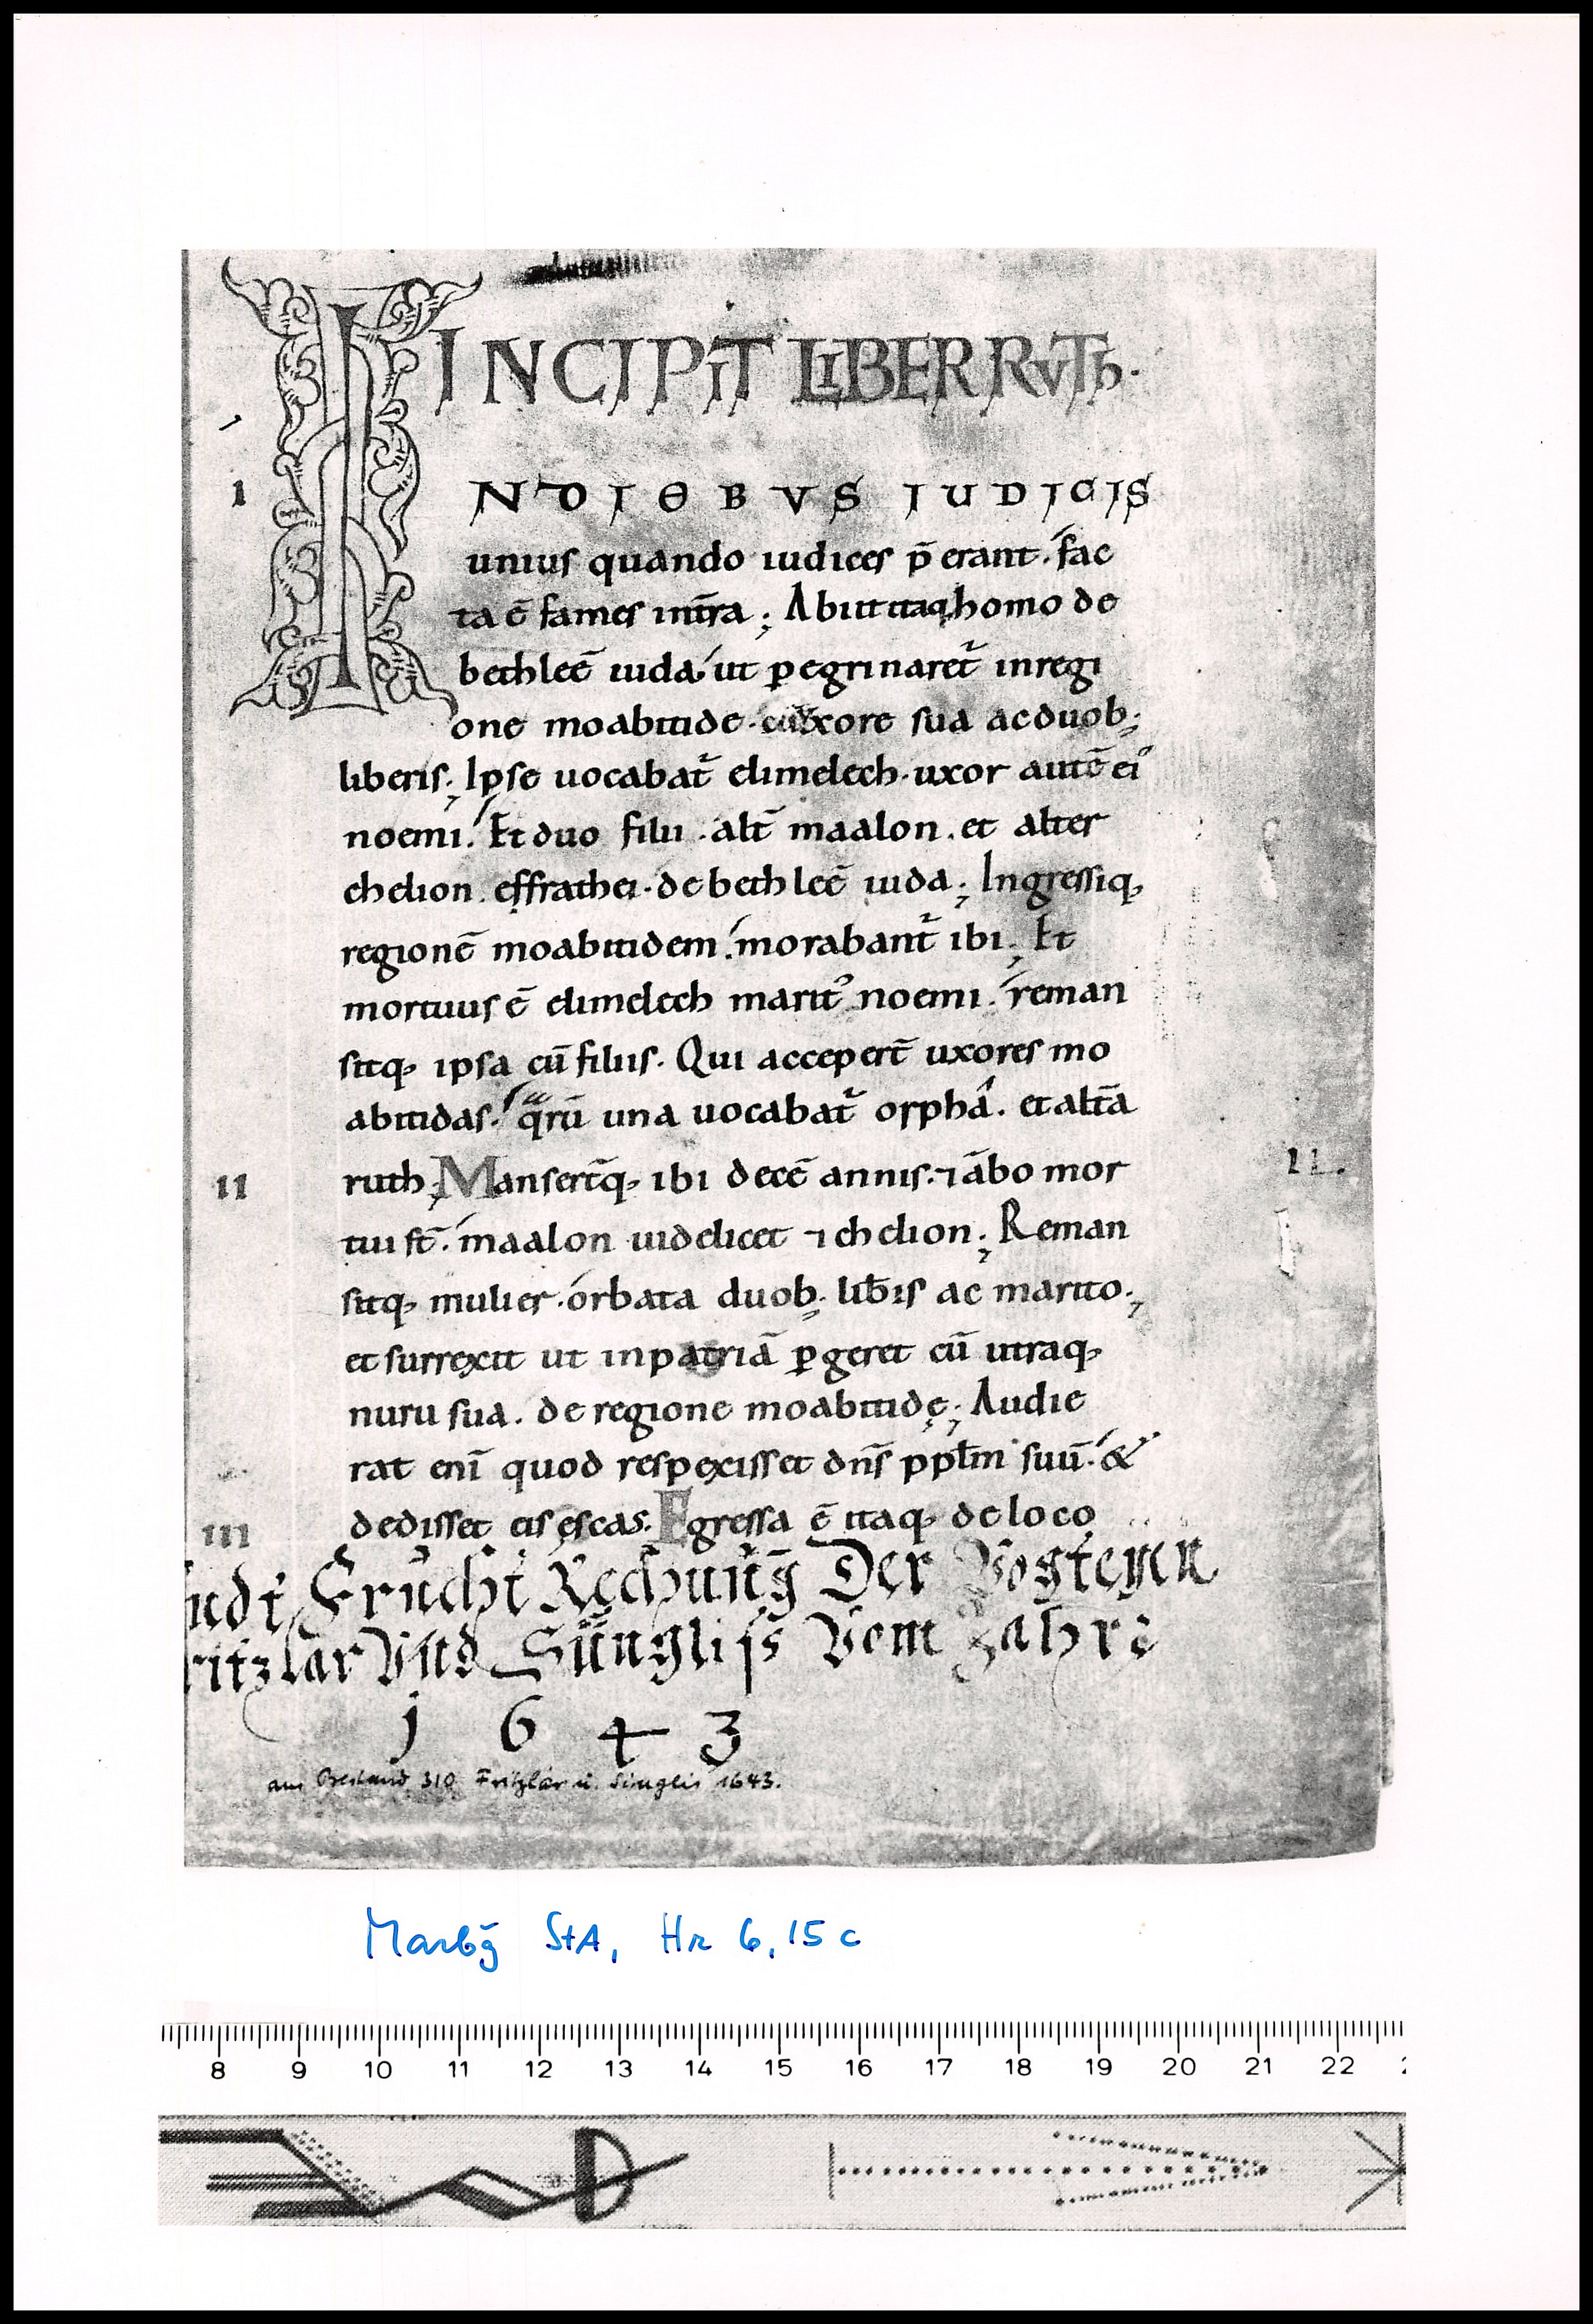 INCIPIT LIBER RVTh.
I
N DIEBVS IUDICIS
unius quando iudices p̄erant. fac
ta ē fames int̄ra; Abiit itaq; homo de
bethleē iuda, ut ꝑegrinaret᷑ inregi
one moabitide. cū uxore sua ac duob;
liberis; Ipse uocabat᷑ elimelech. uxor autē ei᷒
noemi. Et duo filii. alt̄ maalon. et alter
chelion. effrathei. de bethleē iuda; Ingressiq;
regionē moabitidem. morabant᷑ ibi; Et
mortuus ē elimelech marit᷒ noemi. reman
sitq; ipsa cū filiis. Qui accepert̄ uxores mo
abitidas. qͣrū una uocabat᷑ orpha. et alt̄a
II
ruth; Mansert̄q; ibi decē annis. ⁊ ābo mor
II.
tui st̄. maalon uidelicet ⁊ chelion; Reman
sitq; mulier. orbata duob; lib̄is ac marito;
et surrexit ut inpatriā ꝑgeret cū utraq;
nuru sua. de regione moabitidę; Audie
rat enī quod respexisset dn̄s ppl̄m suū. &
III
dedisset eis escas. Egressa ē itaq; de loco
Frucht Rechnung Der Vogteyen
ritzlar Vnd Süngliss Vom Jahre
1643
aus Bestand 310 Fritzlar u. Singlis 1643.
Marbg StA, Hr 6, 15 c
8 9 10 11 12 13 14 15 16 17 18 19 20 21 22